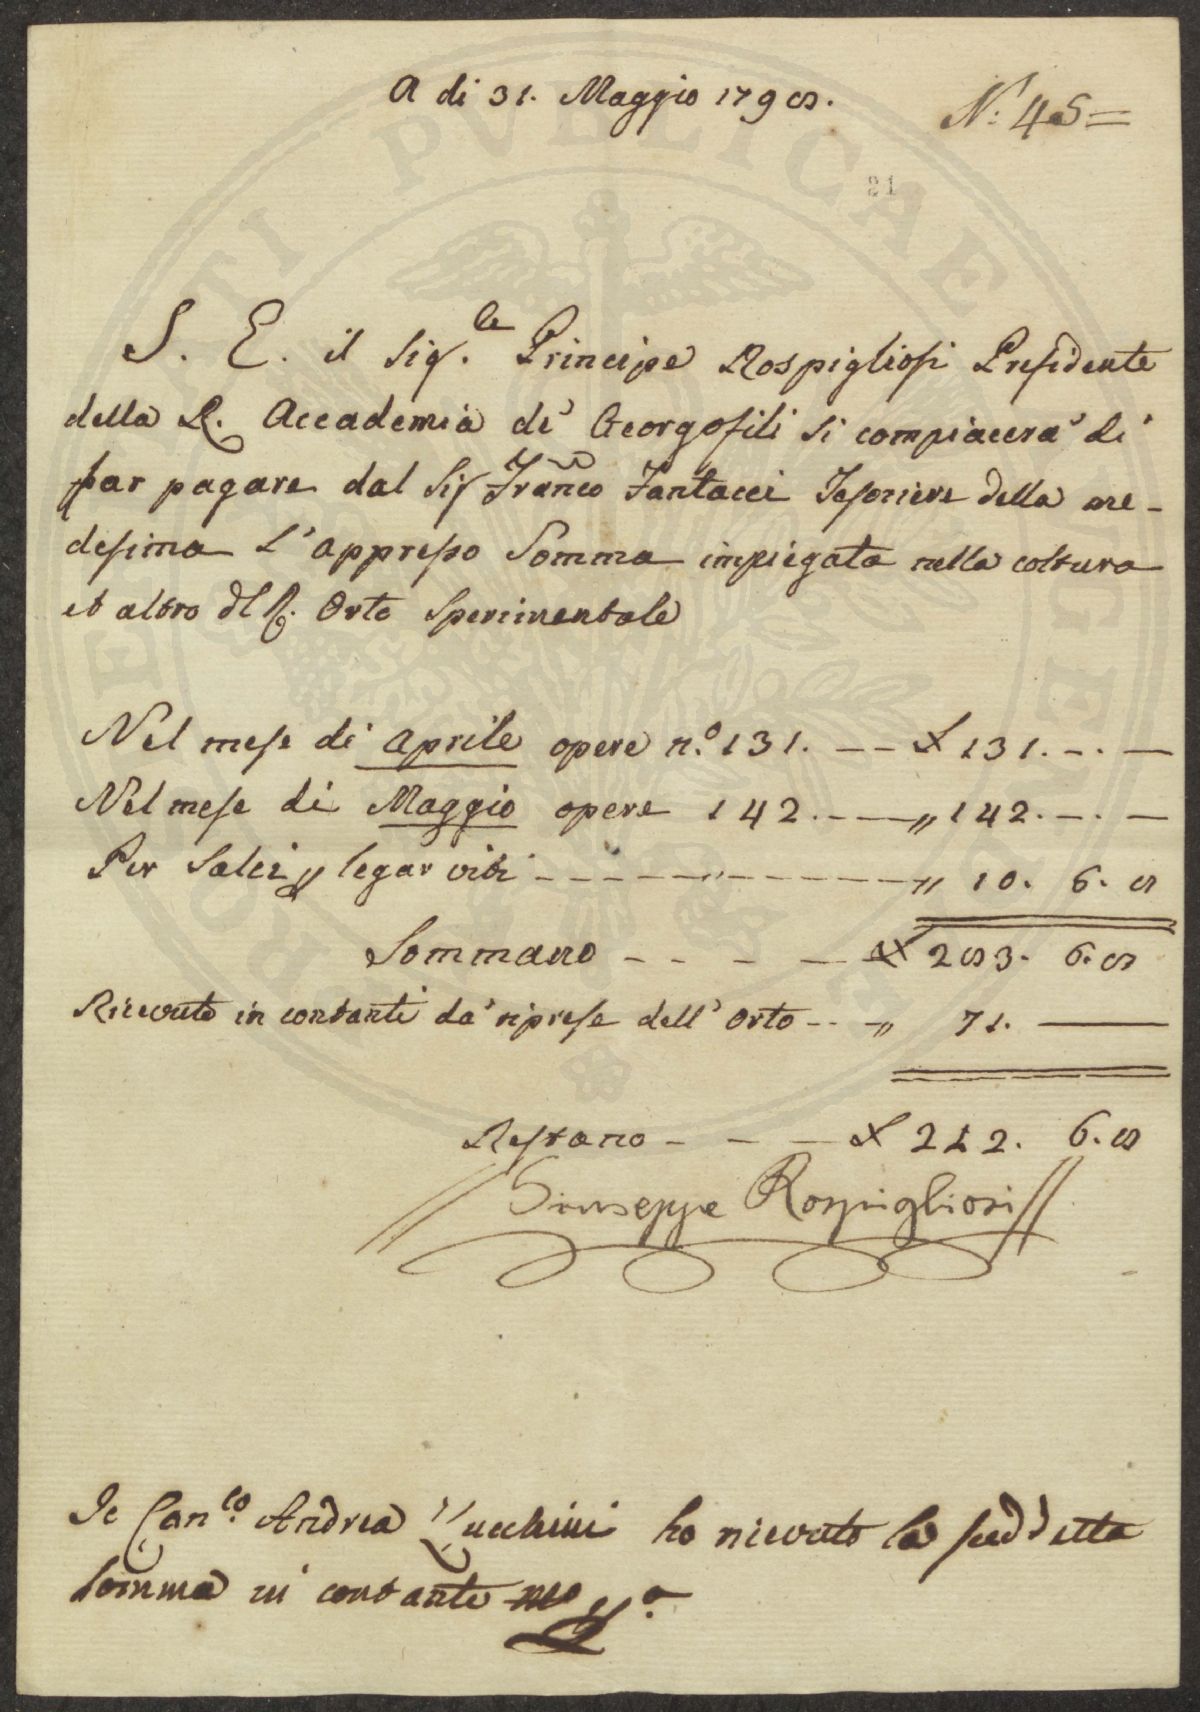 A di 31. Maggio 1798.
N: 45=
21
PVBLICAE
S. E. il Sig.le Principe Rospigliosi Presidente
della R. Accademia de' Georgofili si compiacerà di
far pagare dal Sig Franco Fantacci Tesoriere della me-
desima l'appresso Somma impiegata nella coltura
et altro dl R. Orto Sperimentale
Nel mese di Aprile opere n.o 131. — — £ 131. —. —
Nel mese di Maggio opere 142. — — " 142. —. —
Per Salci p legar viti — — — — " — — — — " 10. 6. 8
Sommano - - - — £ 283. 6. 8
Ricevuto in contanti da riprese dell' Orto - - " 71. —
Restano - - — £ 212. 6. 8
Giuseppe Rospigliosi
Io Can.co Andrea Zucchini ho ricevuto la suddetta
somma in contante mo ppo